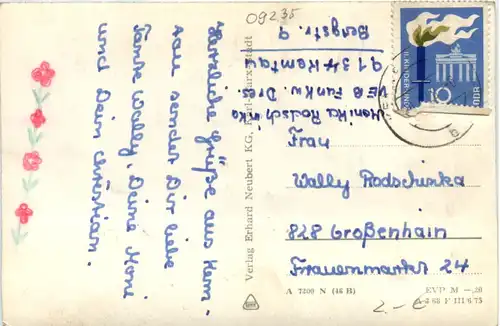 Herzliche Grüße aus Kem-
tau sendet Dir liebe
Tante Wally, Deine Moni
und Dein Christian.
09235
Monika Rodschinka
VEB Funkw. Dres.
9134 Kemtau
Bergstr. 9
Verlag Erhard Neubert KG, Karl-Marx-Stadt
DDR
10
Frau
Wally Rodschinka
828 Großenhain
Frauenmarkt 24
A 7200 N (46 B)
EVP M –,20
68 F 171 6/75
2.- €